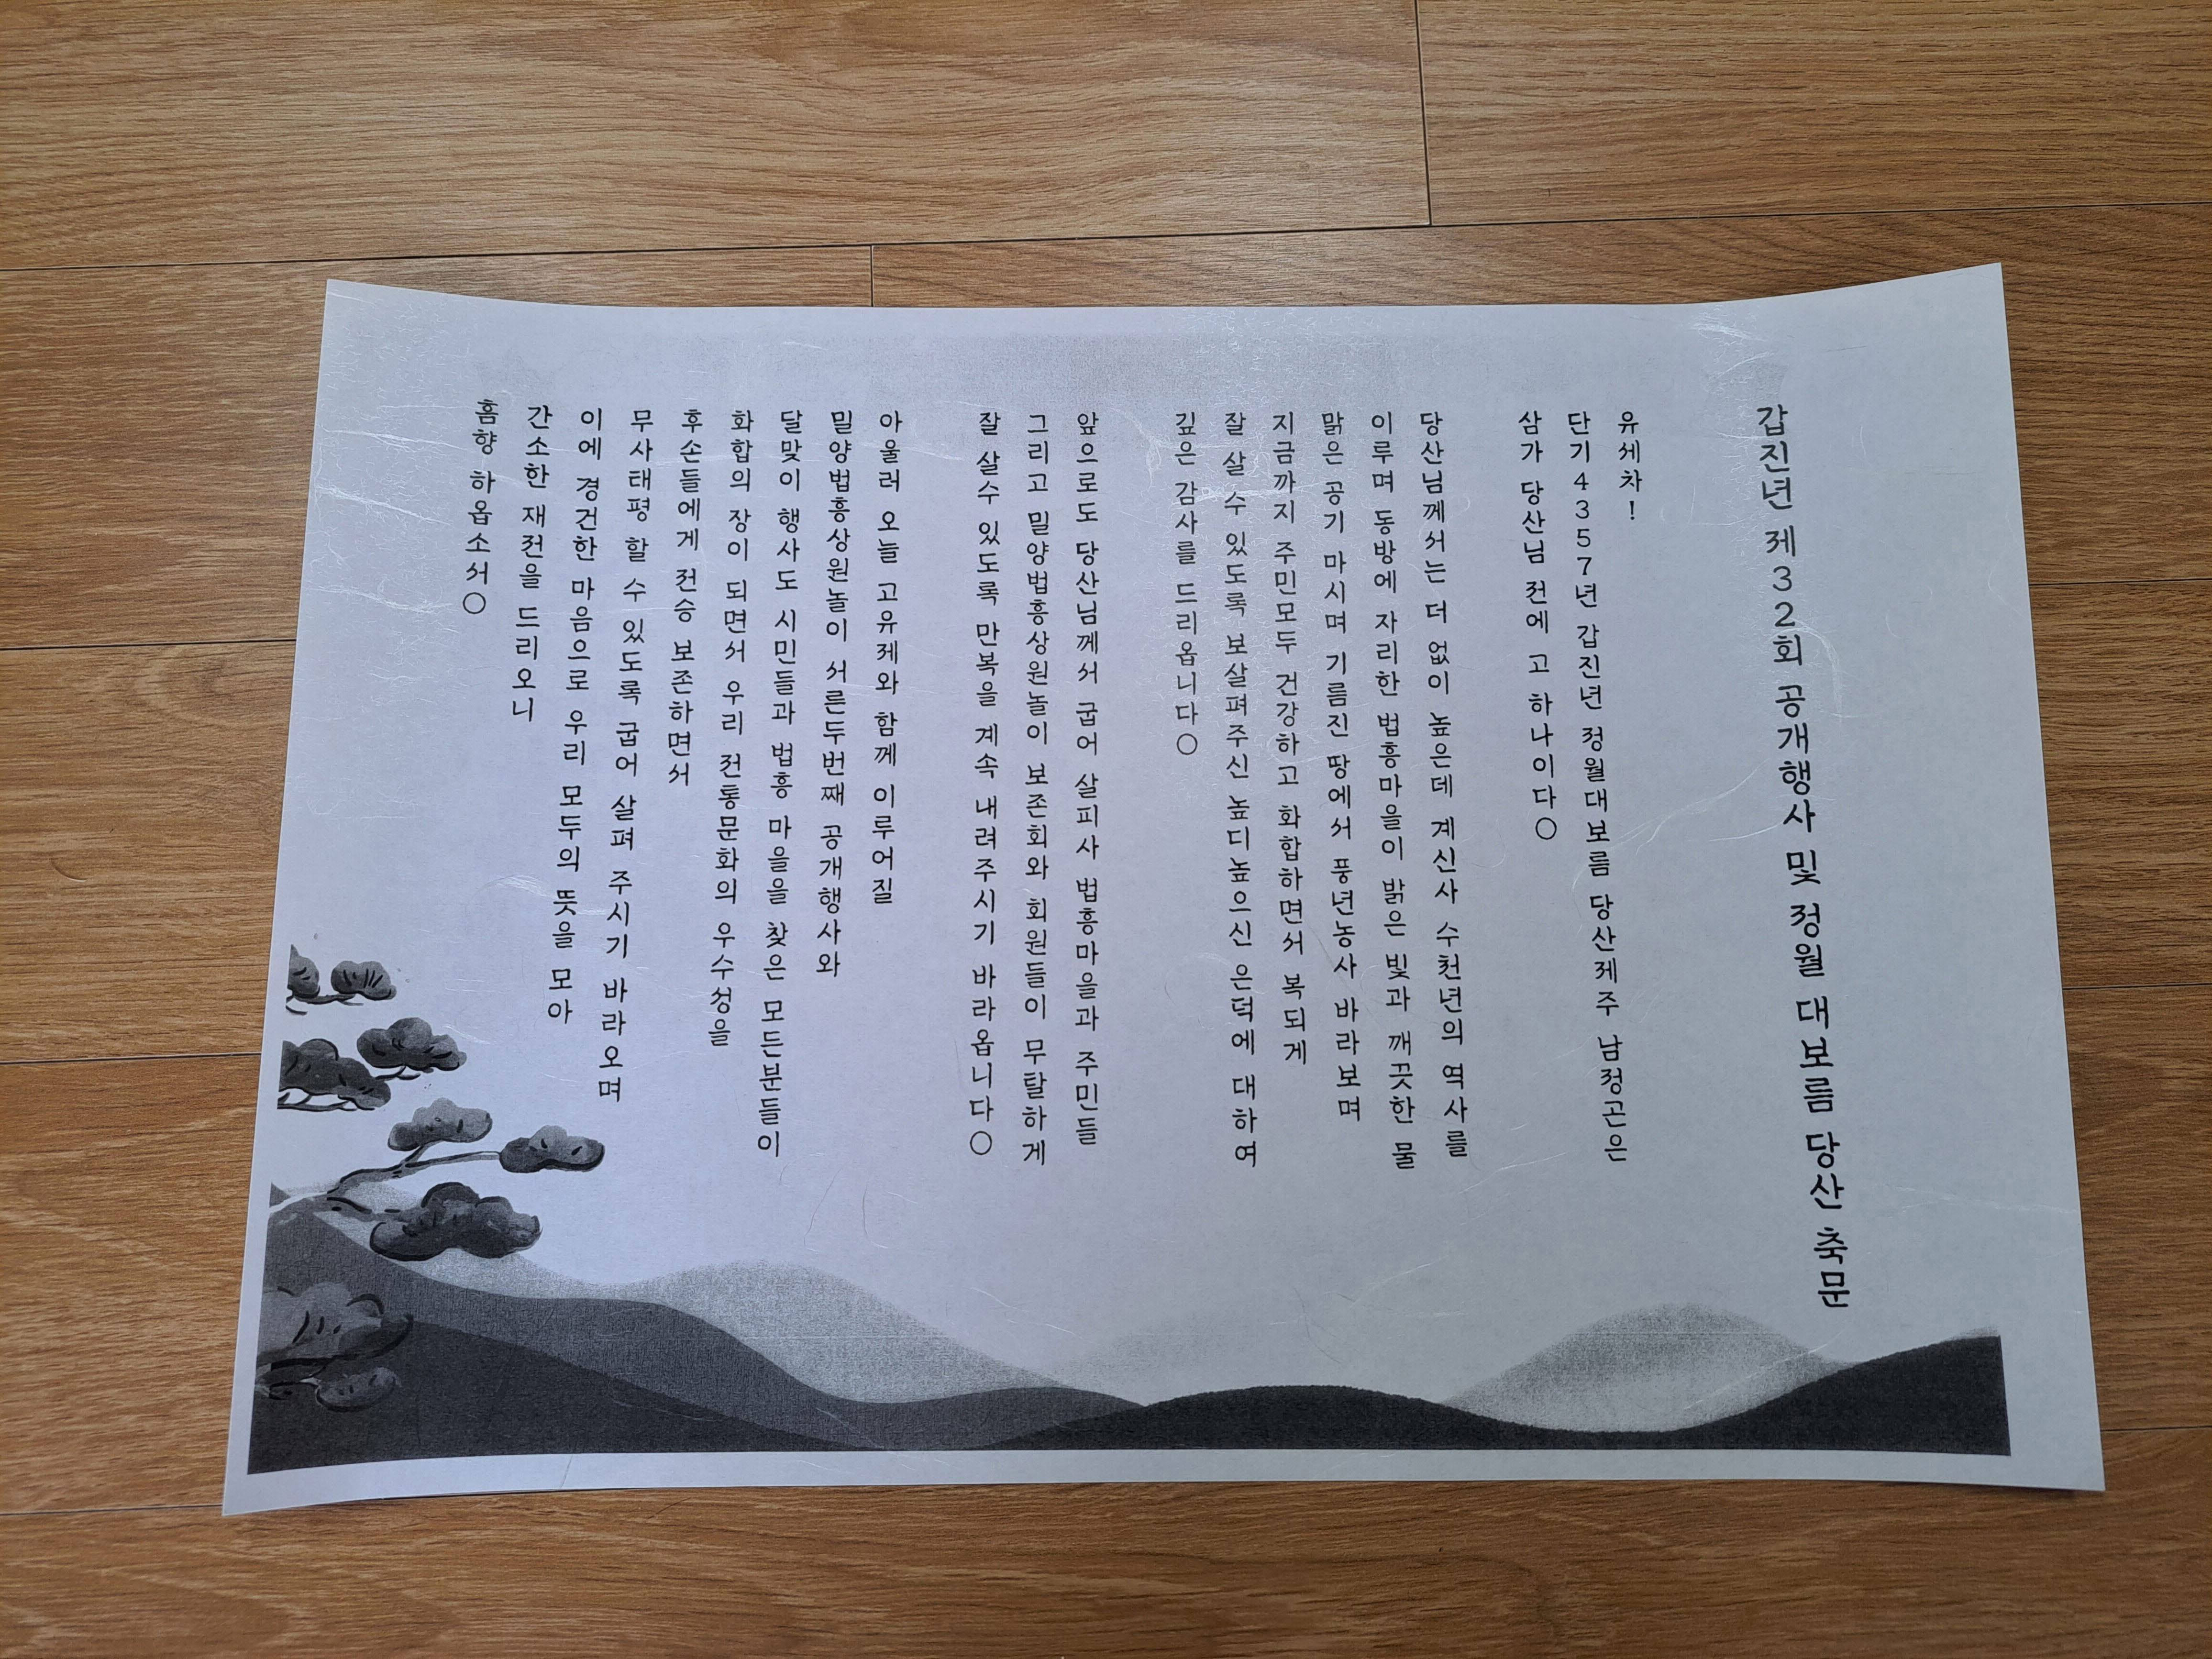 갑진년 제32회 공개행사 및 정월 대보름 당산 축문
유세차!
단기4357년 갑진년 정월대보름 당산제주 남정곤은
삼가 당산님 전에 고 하나이다○
당산님께서는 더 없이 높은데 계신사 수천년의 역사를
이루며 동방에 자리한 법흥마을이 밝은 빛과 깨끗한 물
맑은 공기 마시며 기름진 땅에서 풍년농사 바라보며
지금까지 주민모두 건강하고 화합하면서 복되게
잘 살 수 있도록 보살펴주신 높디높으신 은덕에 대하여
깊은 감사를 드리옵니다○
앞으로도 당산님께서 굽어 살피사 법흥마을과 주민들
그리고 밀양법흥상원놀이 보존회와 회원들이 무탈하게
잘 살수 있도록 만복을 계속 내려주시기 바라옵니다○
아울러 오늘 고유제와 함께 이루어질
밀양법흥상원놀이 서른두번째 공개행사와
달맞이 행사도 시민들과 법흥 마을을 찾은 모든분들이
화합의 장이 되면서 우리 전통문화의 우수성을
후손들에게 전승 보존하면서
무사태평 할 수 있도록 굽어 살펴 주시기 바라오며
이에 경건한 마음으로 우리 모두의 뜻을 모아
간소한 재전을 드리오니
흠향 하옵소서○